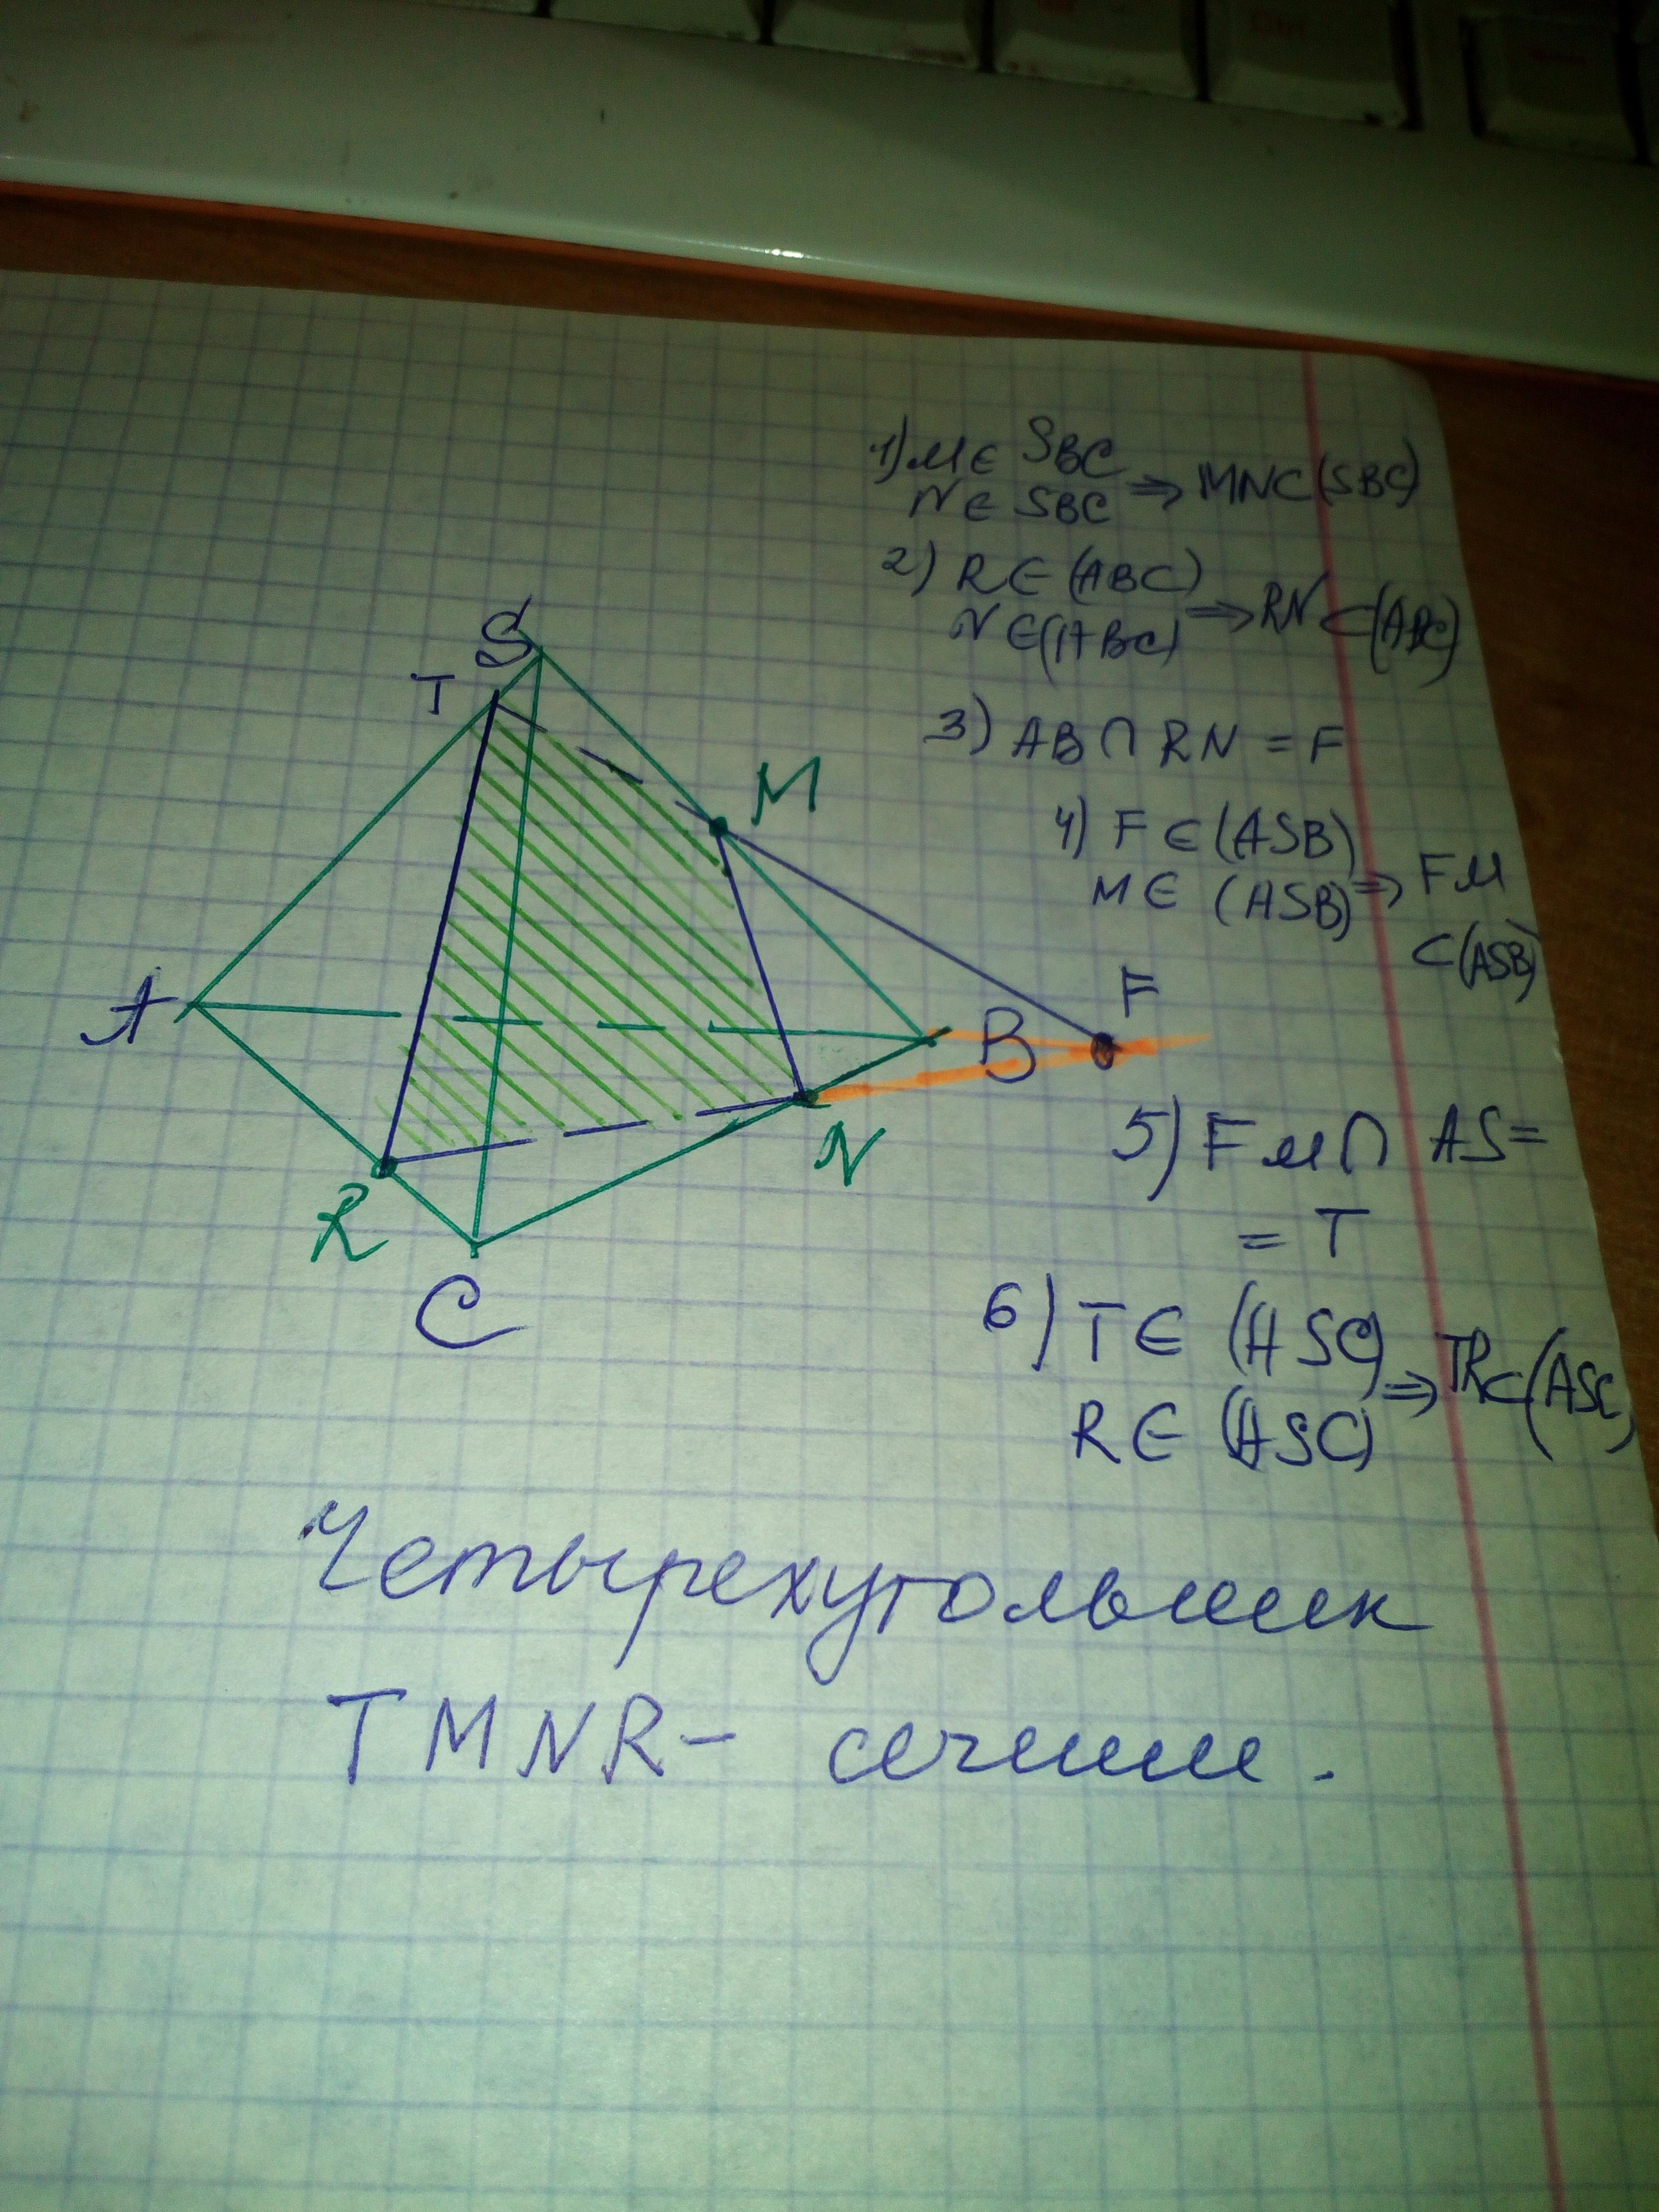 1) M ∈ SBC
N ∈ SBC ⇒ MN ⊂ (SBC)
2) R ∈ (ABC)
N ∈ (ABC) ⇒ RN ⊂ (ABC)
3) AB ∩ RN = F
4) F ∈ (ASB)
M ∈ (ASB) ⇒ FM
⊂ (ASB)
S
T
M
A
F
B
N
R
C
5) FM ∩ AS =
= T
6) T ∈ (ASC)
R ∈ (ASC) ⇒ TR ⊂ (ASC)
Четырехугольник
TMNR - сечение.